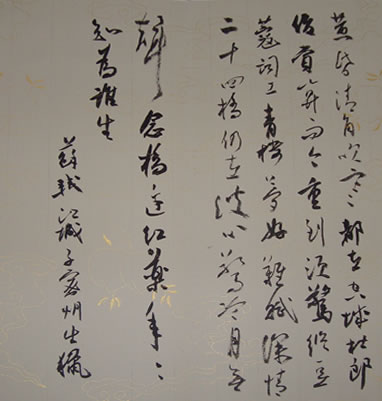 黃昏清角吹寒都在空城杜郎
俊賞算而今重到須驚縱豆
蔻詞工青樓夢好難賦深情
二十四橋仍在波心蕩冷月無
聲念橋邊紅藥年〻
知為誰生
蘇軾江城子密州出獵